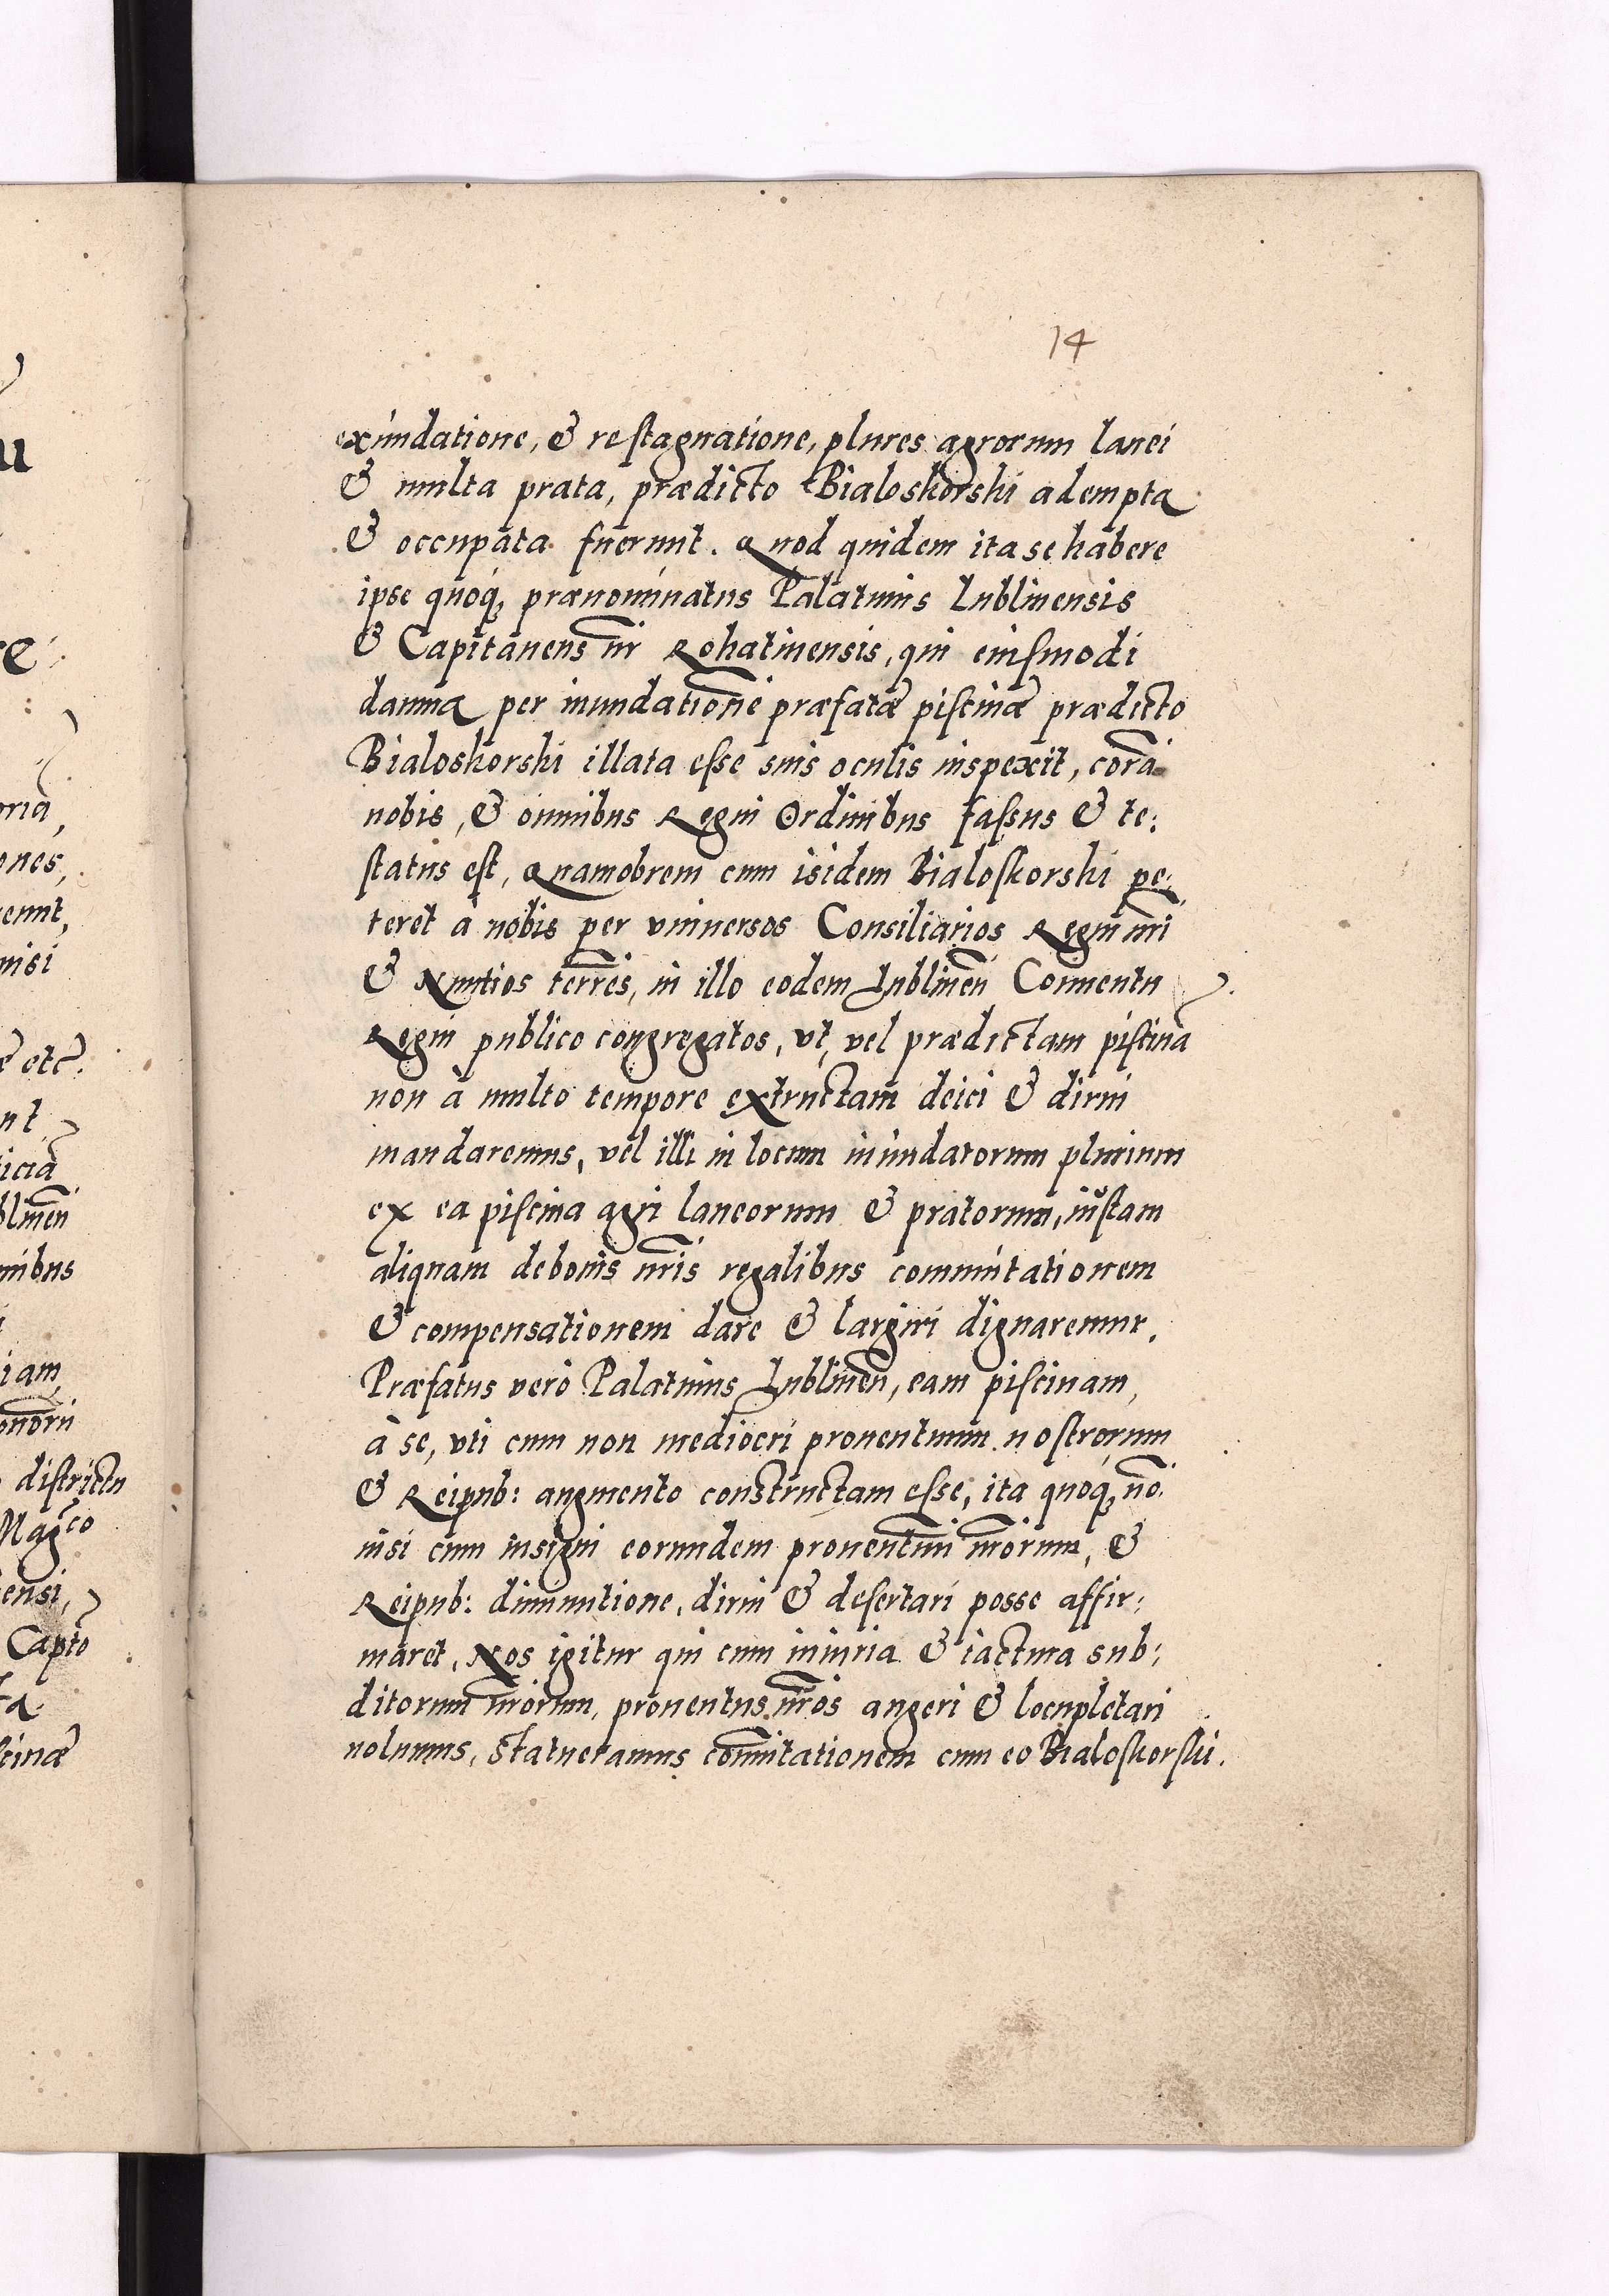 14
exundatione, & restagnatione, plures agrorum lanei
& multa prata, prædicto Bialoskorski adempta
& occupata fuerunt. Quod quidem ita se habere
ipse quoq₃ prænominatus Palatinus Lublinensis
& Capitaneus nr̃ Rohatinensis, qui eiusmodi
damna per inundationẽ præfatæ piscinæ prædicto
Bialoskorski illata esse suis oculis inspexit, corã
nobis, & omnibus Regni Ordinibus fassus & te:
status est, Quamobrem cum isidem Bialoskorski pe:
teret à nobis per vniuersos Consiliarios Regni nr̃i
& Nuntios terrẽs, in illo eodem Lublineñ Conuentu
Regni publico congregatos, vt, vel prædictam piscinã
non à multo tempore extructam deici & dirui
mandaremus, vel illi in locum inundatorum plurium
ex ea piscina agri laneorum & pratorum, iustam
aliquam de bonis nr̃is regalibus commutationem
& compensationem dare & largiri dignaremur.
Præfatus verò Palatinus Lublineñ, eam piscinam,
à se, vti cum non mediocri prouentuum nostrorum
& Reipub: augmento constructam esse, ita quoq₃ nõ
nisi cum insigni eorundem prouentuũ nr̃orum, &
Reipub: diminutione, dirui & desertari posse affir:
maret, Nos igitur qui cum iniuria & iactura sub:
ditorum nr̃orum, prouentus nr̃os augeri & locupletari
nolumus, Statueramus com̃utationem cum eo Bialoskorski.